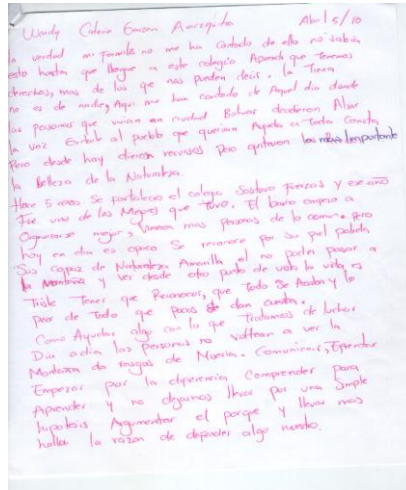 Wendy Caterin Garzon Amezquita Abril 5/10
la verdad mi familia no me ha contado de ello no sabia
esto hasta que llegue a este colegio Aprendi que Tenemos
derechos, mas de los que nos pueden decir. la Tierra
no es de nadie, Aqui me han contado de Aquel dia donde
las personas que vivian en ciudad Bolivar decidieron Alzar
la voz al pueblo que querian Ayuda a Toda Costa,
Pero desde hay dieron recursos Pero quitaron lo mas importante
la Belleza de la Naturaleza.
Hace 5 años. Se fortalecio el colegio Sostuvo fuerzas y ese año
Fue uno de los Mejores que Tuvo. El barrio empezo a
Organizarse mejor, Vinieron mas personas de lo comun. Pero
hoy en dia es opaco Se reconoce por su piel palida
Sus capas de Naturaleza Amarilla el no poder pasar a
la Montaña y ver desde otro punto de vista la vida, es
Triste Tener que Reconocer, que Todo se Acaba y lo
peor de Todo que pocos se dan cuenta.
Como Ayudar algo con lo que Tratamos de luchar
Dia a dia las personas no voltean a ver la
Montaña da rasgos de Muerte. Comunicar,
Empezar por la diferencia Comprender para
Aprender y no dejarnos llevar por una Simple
hipotesis Argumentar el porque y llevar mas
halla la razon de defender algo nuestro.